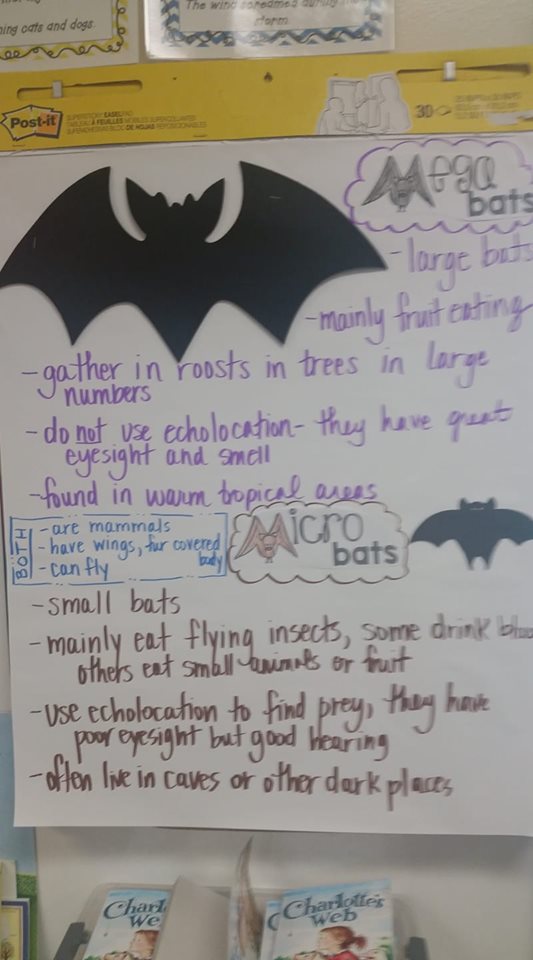 ning cats and dogs.
The wind screamed during the
storm.
Post-it
SUPERSTICKY EASEL PAD
30
Mega
bats
-large bats
-mainly fruit eating
-gather in roosts in trees in large
numbers
-do not use echolocation- they have great
eyesight and smell
-found in warm tropical areas
BOTH
-are mammals
-have wings, fur covered
body
-can fly
Micro
bats
-small bats
-mainly eat flying insects, some drink
others eat small animals or fruit
-use echolocation to find prey, they have
poor eyesight but good hearing
-often live in caves or other dark places
Charl
We
C
Charlotte's
Web